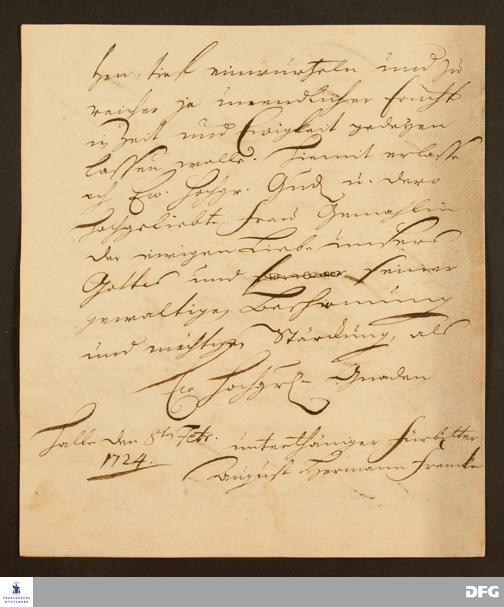 tzen, tief einwurtzeln und zu
reicher ja unendlicher Frucht
in Zeit und Ewigkeit gedeyen
lassen wolle. Hiemit erlasse
ich Ew. Hochgr. Gnd. u. dero
Hochgeliebte Frau Gemahlin
der ewigen Liebe unsers
Gottes und seiner
gewaltigen Beschirmung
und mächtigen Stärckung, als
Ew. Hochgrfl. Gnaden
Halle den 8ten Febr.
1724.
unterthäniger Fürbitter
August Hermann Francke
FRANCKESCHE STIFTUNGEN
DFG